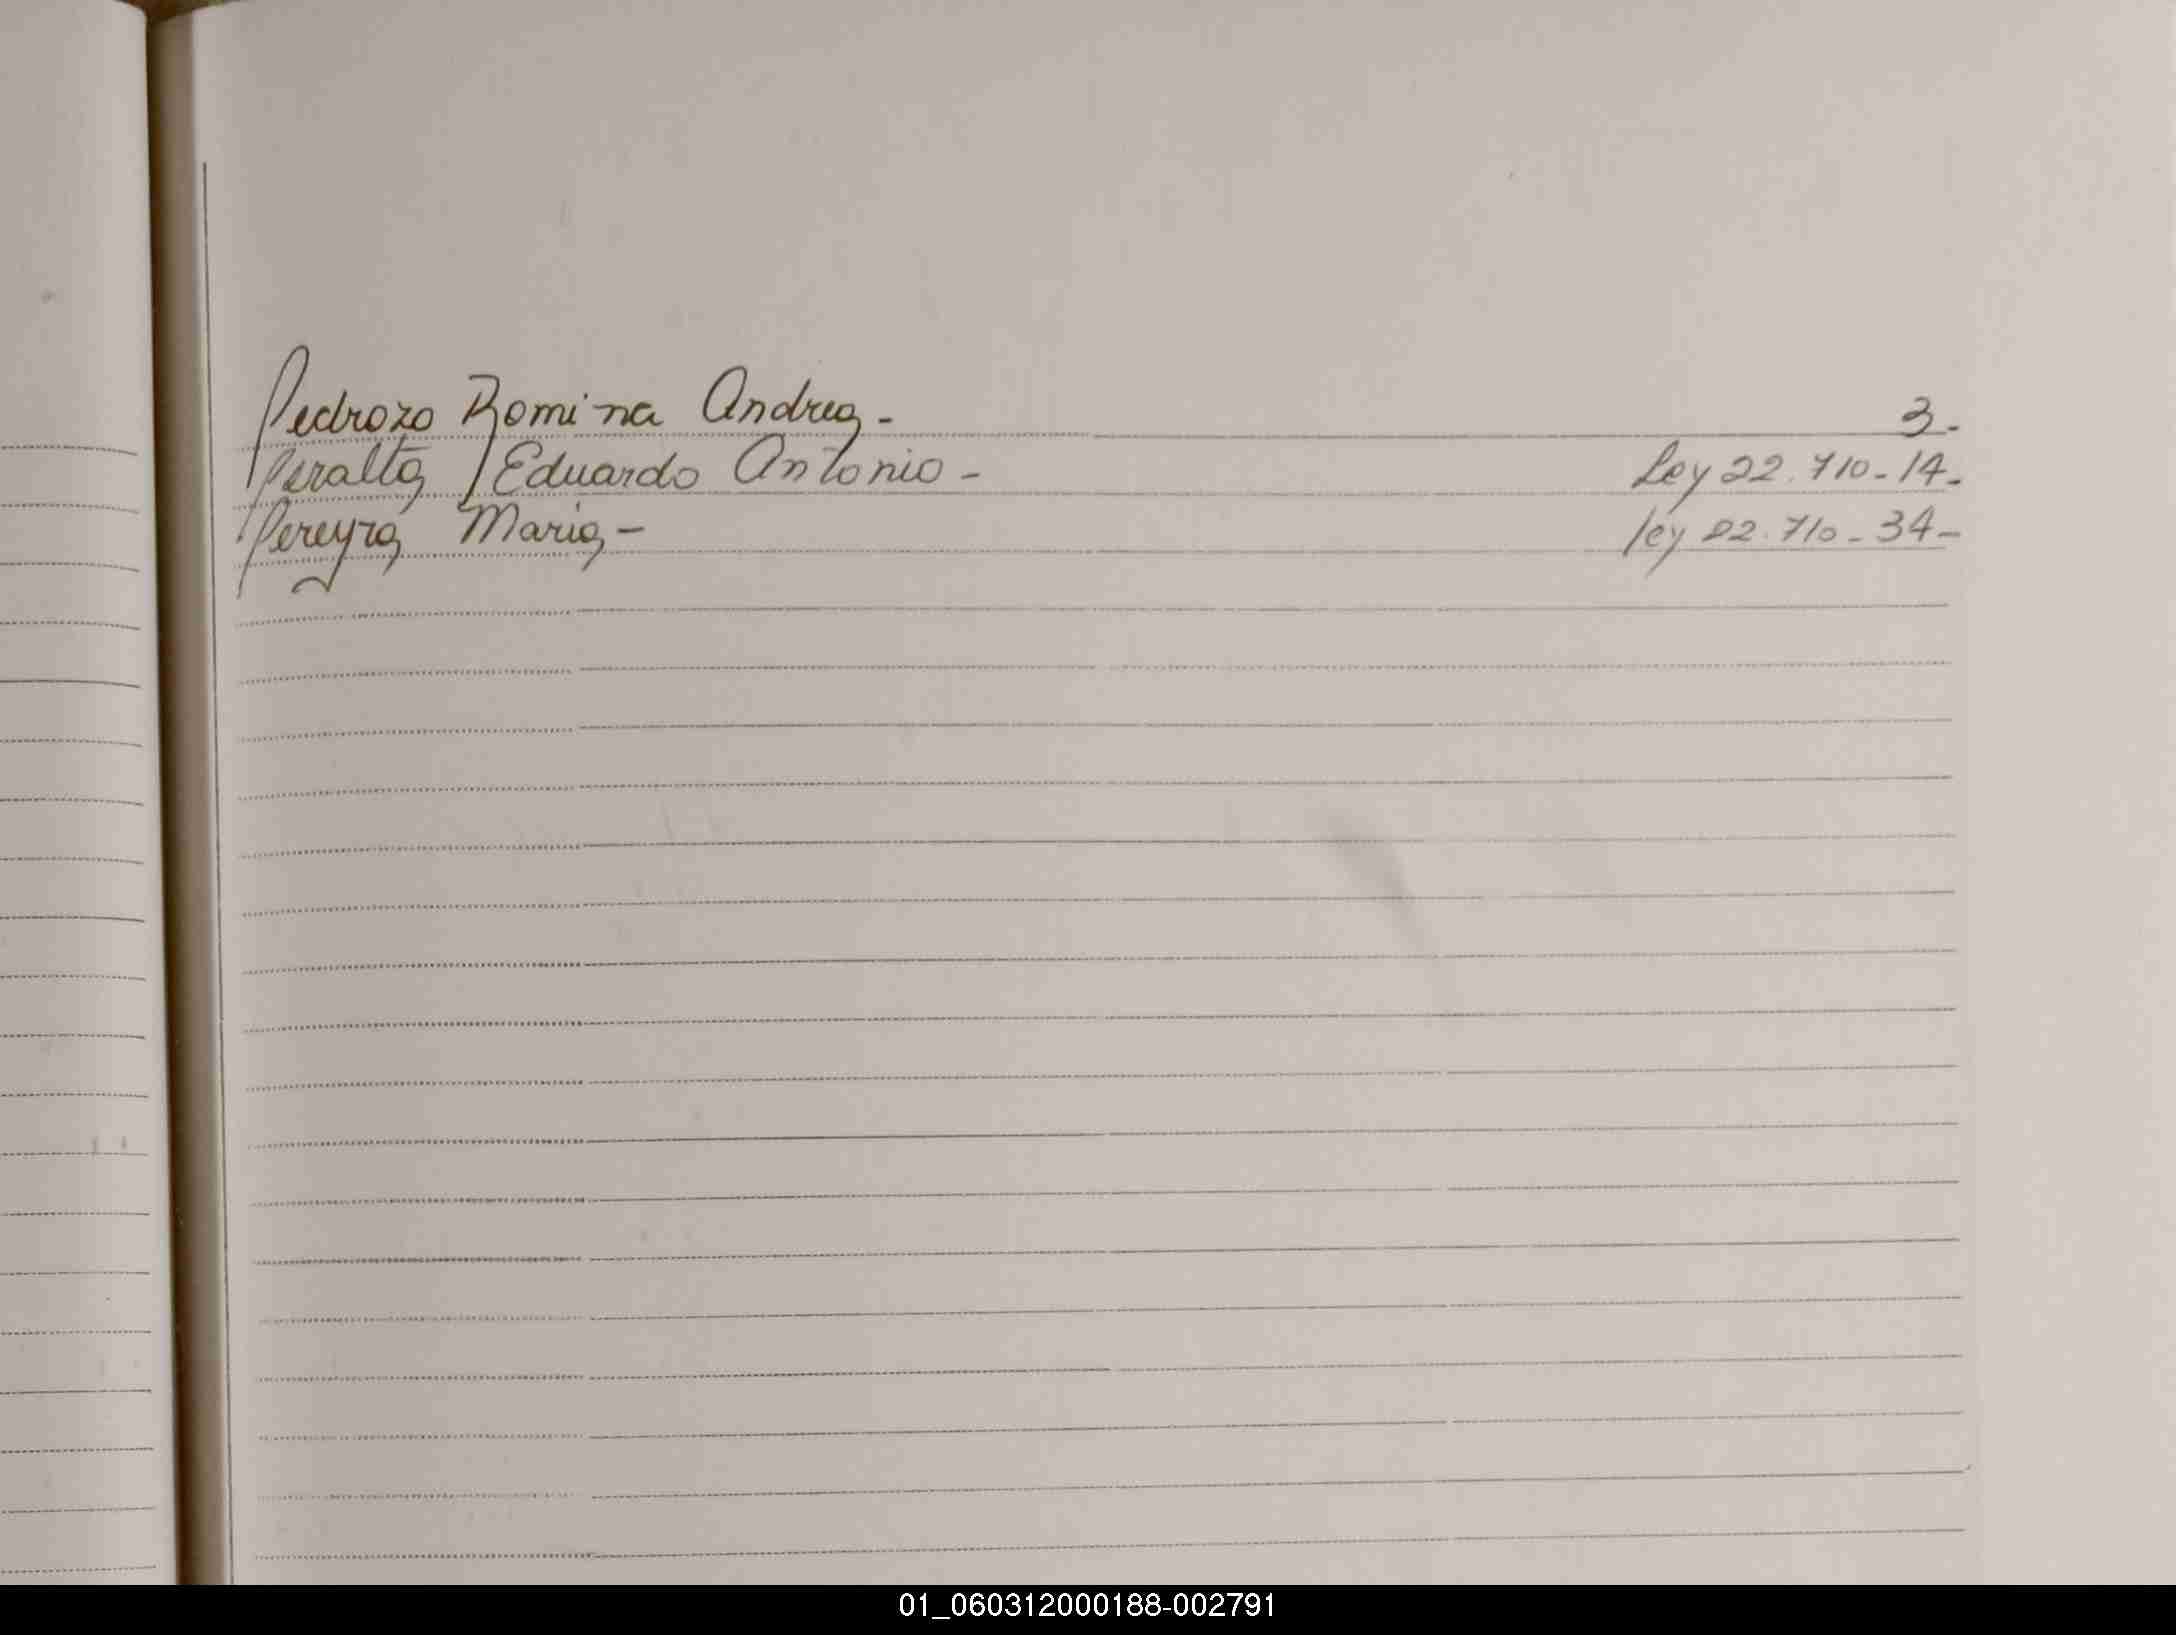 Pedrozo Romina Andrea - 3-
Peralta, Eduardo Antonio - Ley 22.710-14-
Pereyra Maria - ley 22.710-34-
01_060312000188-002791